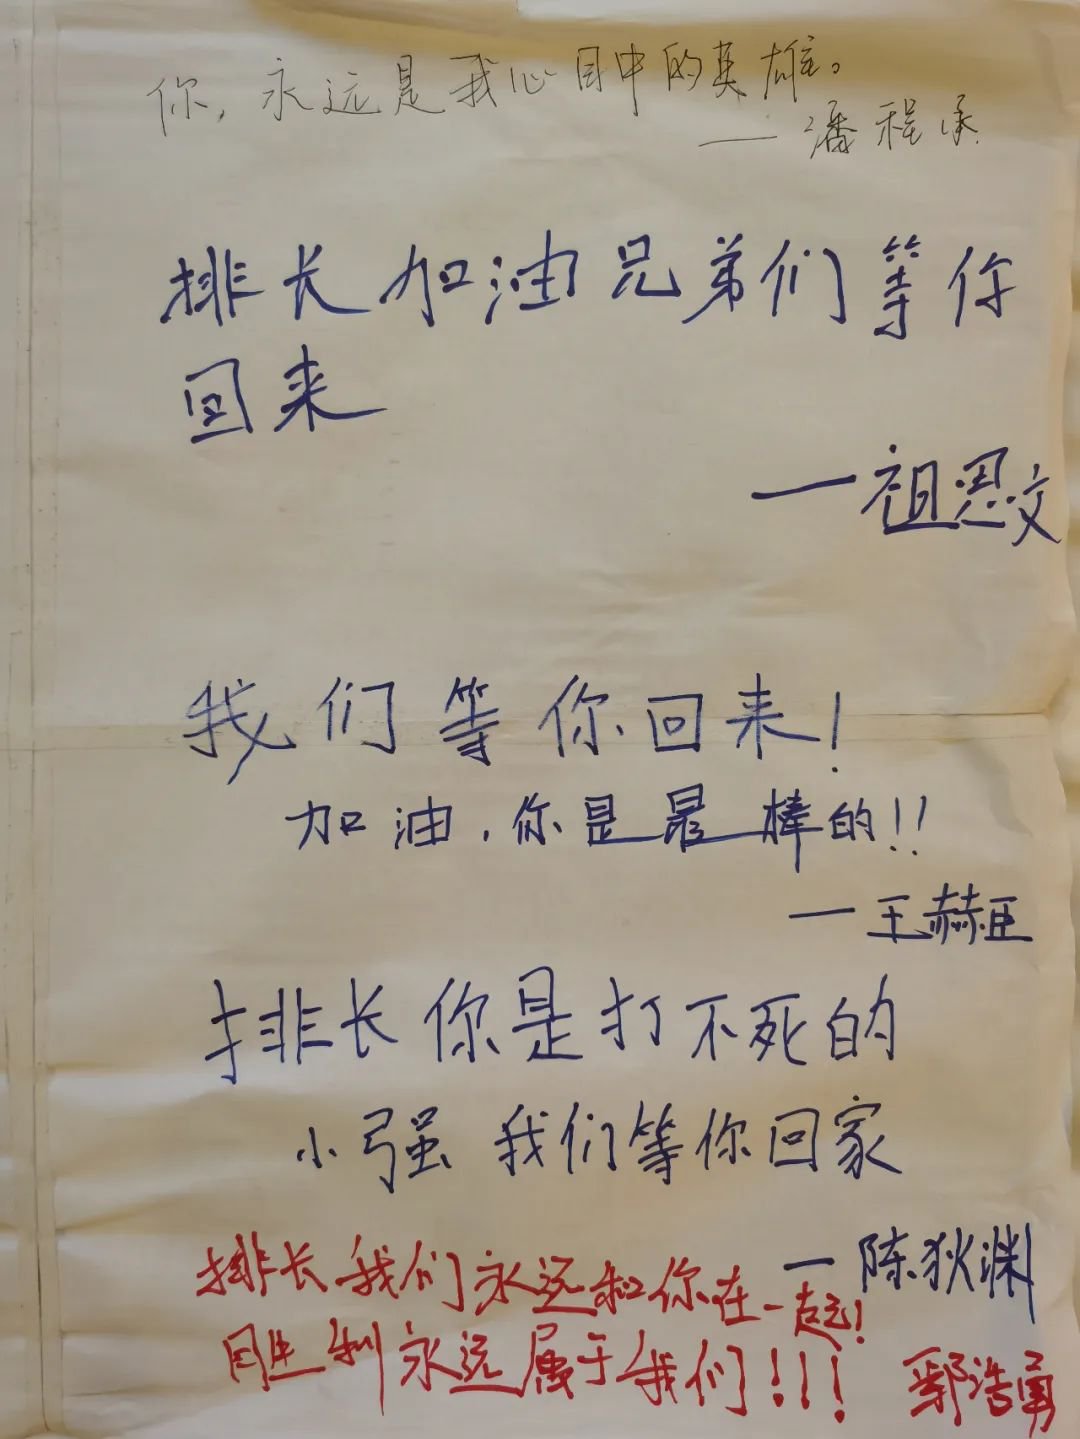 你，永远是我心目中的英雄。
——潘程承
排长加油兄弟们等你
回来
—祖恩文
我们等你回来！
加油，你是最棒的!!
—王赫臣
排长你是打不死的
小强 我们等你回家
—陈狄渊
排长我们永远和你在一起！
胜利永远属于我们！！！
郭浩勇